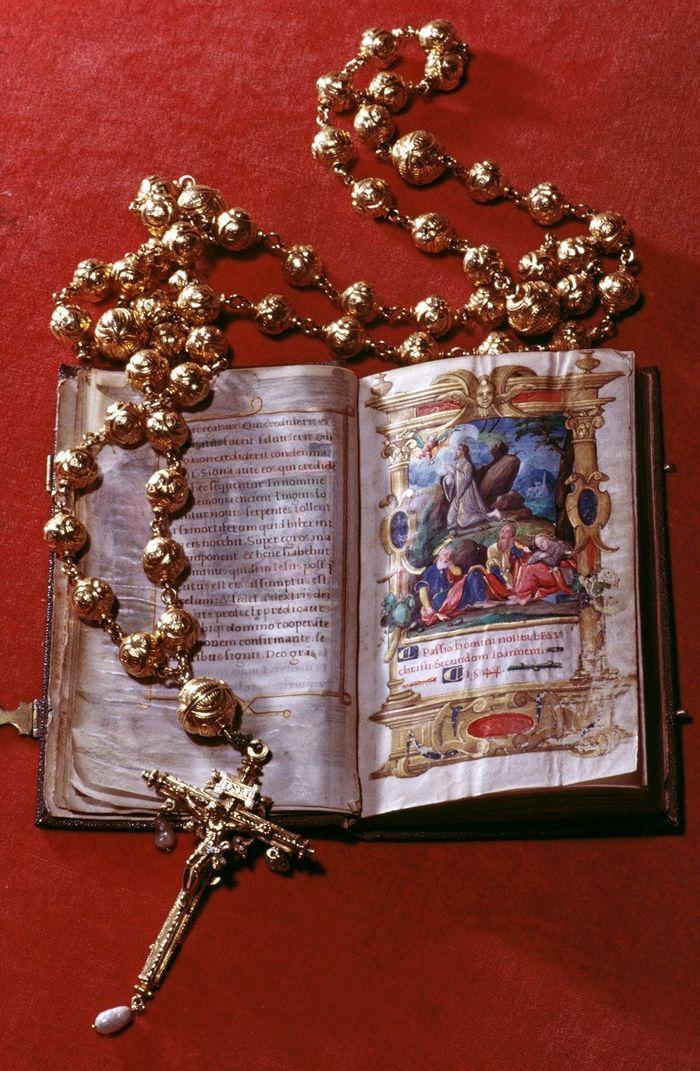 reature Qui crediderit &
tus fuerit saluus erit Qui
o non crediderit condemna
r. Signa autē eos qui credide
sequentur. In nomine
monia eiicient. linguis lo
ntur nouis. Serpentes tollent
si mortiferum quid biberint
eis nocebit. Super egros ma
imponent & bene habebūt
minus quidem Iesus postq̄
utus est eis: assumptus est
celum: & sedet a dextris dei
autē profecti predicauer
biq; domino cooperāte
monem confirmante se
tibus signis. Deo gras.
Passio Domini nostri IHESV
christi Secundum Ioannem.
1544.
INRI